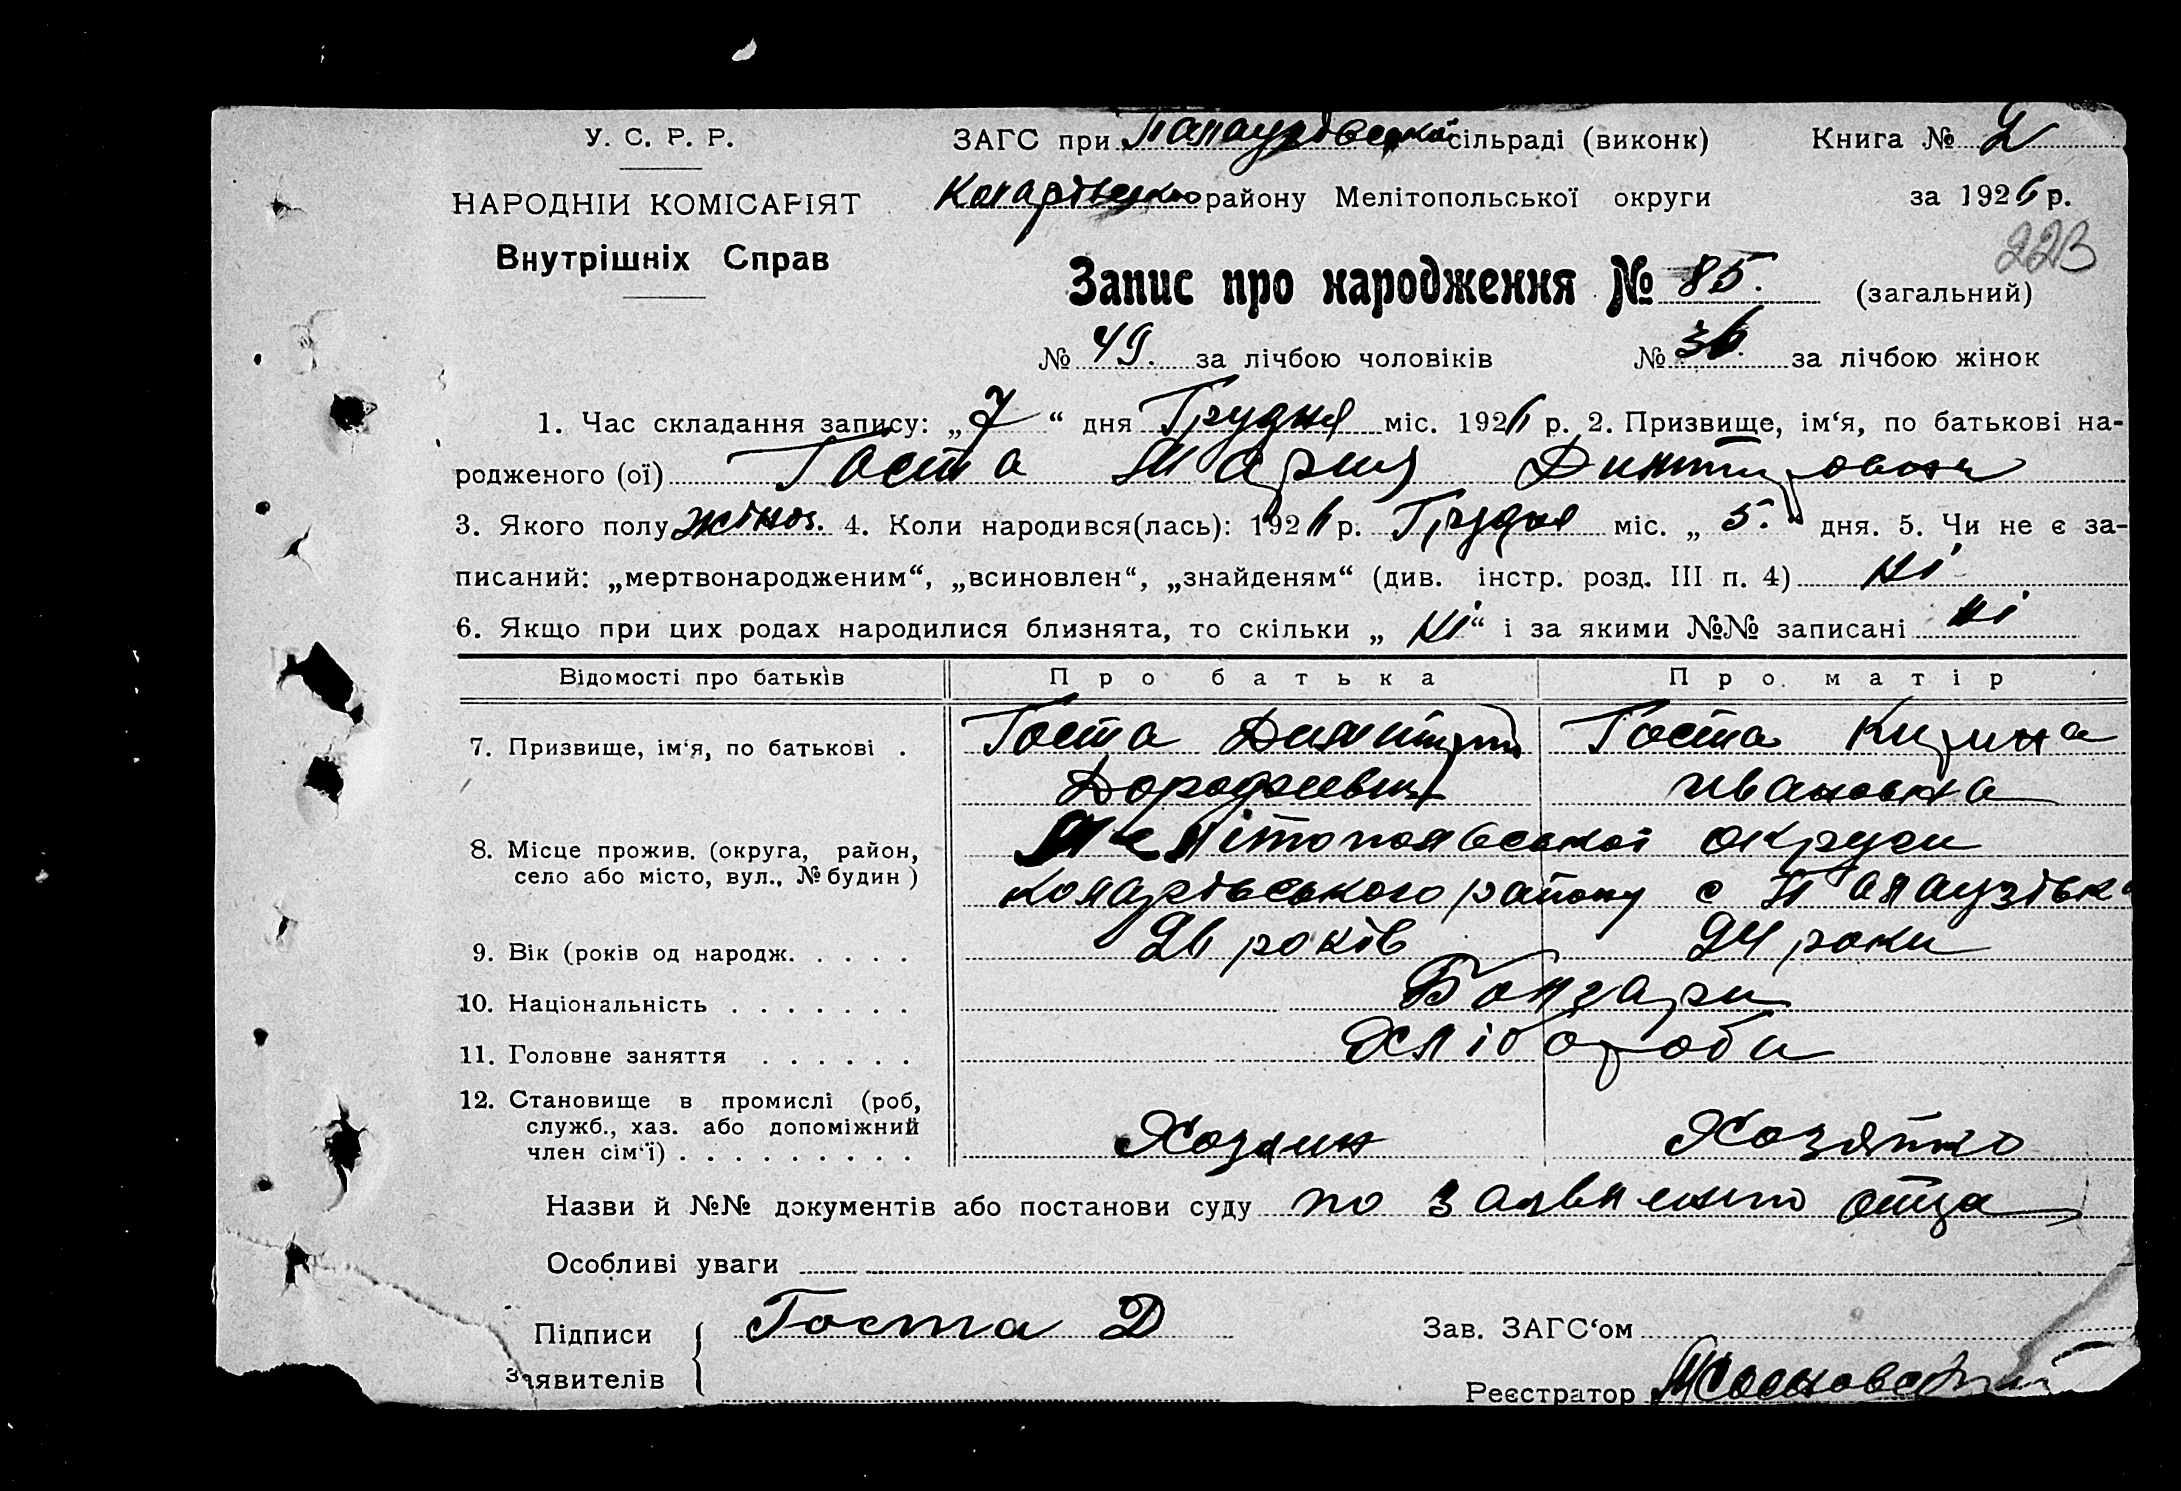 У. С. Р. Р.
ЗАГС при Палаузівської сільраді (виконк) Книга № 2
НАРОДНІЙ КОМІСАРІЯТ
Коларівського району Мелітопольської округи за 1926 р.
Внутрішніх Справ
223
Запис про народження № 85. (загальний)
№ 49. за лічбою чоловіків № 36. за лічбою жінок
1. Час складання запису: „ 7 “ дня Грудня міс. 1926 р. 2. Призвище, ім‘я, по батькові на-
родженого (ої) Госта Мария
3. Якого полу жіноч. 4. Коли народився(лась): 1926 р. Грудня міс. „ 5. “ дня. 5. Чи не є за-
писаний: „мертвонародженим“, „всиновлен“, „знайденям“ (див. інстр. розд. III п. 4) ні
6. Якщо при цих родах народилися близнята, то скільки „ ні “ і за якими №№ записані ні
Відомості про батьків Про батька Про матір
7. Призвище, ім‘я, по батькові . Госта Димитрий Госта Кирина
Дорофеевич Ивановна
8. Місце прожив. (округа, район, Мелітопольської округи
село або місто, вул., № будин ) Коларівського району с Палаузівка
9. Вік (років од народж. . . . . 26 років 24 роки
10. Національність . . . . . . . Болгари
11. Головне заняття . . . . . . Хлібороби
12. Становище в промислі (роб,
служб., хаз. або допоміжний
член сім‘ї) . . . . . . . . . Хозяин Хозяйка
Назви й №№ документів або постанови суду по заявлению отца
Особливі уваги
Підписи Госта Д Зав. ЗАГС‘ом
Заявителів
Реєстратор